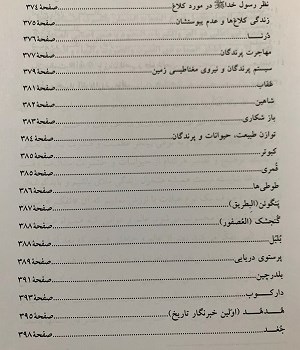 نظر رسول خدا ﷺ در مورد کلاغ......صفحهٔ ۳۷۴
زندگی کلاغ‌ها و عدم پیوستشان......صفحهٔ ۳۷۵
دُرنــا......صفحهٔ ۳۷۶
مهاجرت پرندگان......صفحهٔ ۳۷۷
سیستم پرندگان و نیروی مغناطیسی زمین......صفحهٔ ۳۷۹
عقاب......صفحهٔ ۳۸۱
شاهین......صفحهٔ ۳۸۲
باز شکاری......صفحهٔ ۳۸۳
توازن طبیعت، حیوانات و پرندگان......صفحهٔ ۳۸۴
کبوتر......صفحهٔ ۳۸۵
قُمری......صفحهٔ ۳۸۵
طوطی‌ها......صفحهٔ ۳۸۶
پَنگوئن(البطریق)......صفحهٔ ۳۸۷
گُنجشک (العُصفور)......صفحهٔ ۳۸۸
بُلبُل......صفحهٔ ۳۸۸
پرستوی دریایی......صفحهٔ ۳۸۹
بلدرچین......صفحهٔ ۳۹۱
دارکــوب......صفحهٔ ۳۹۳
هُـدهُـد (اوّلین خبرنگار تاریخ)......صفحهٔ ۳۹۵
جُغـد......صفحهٔ ۳۹۸